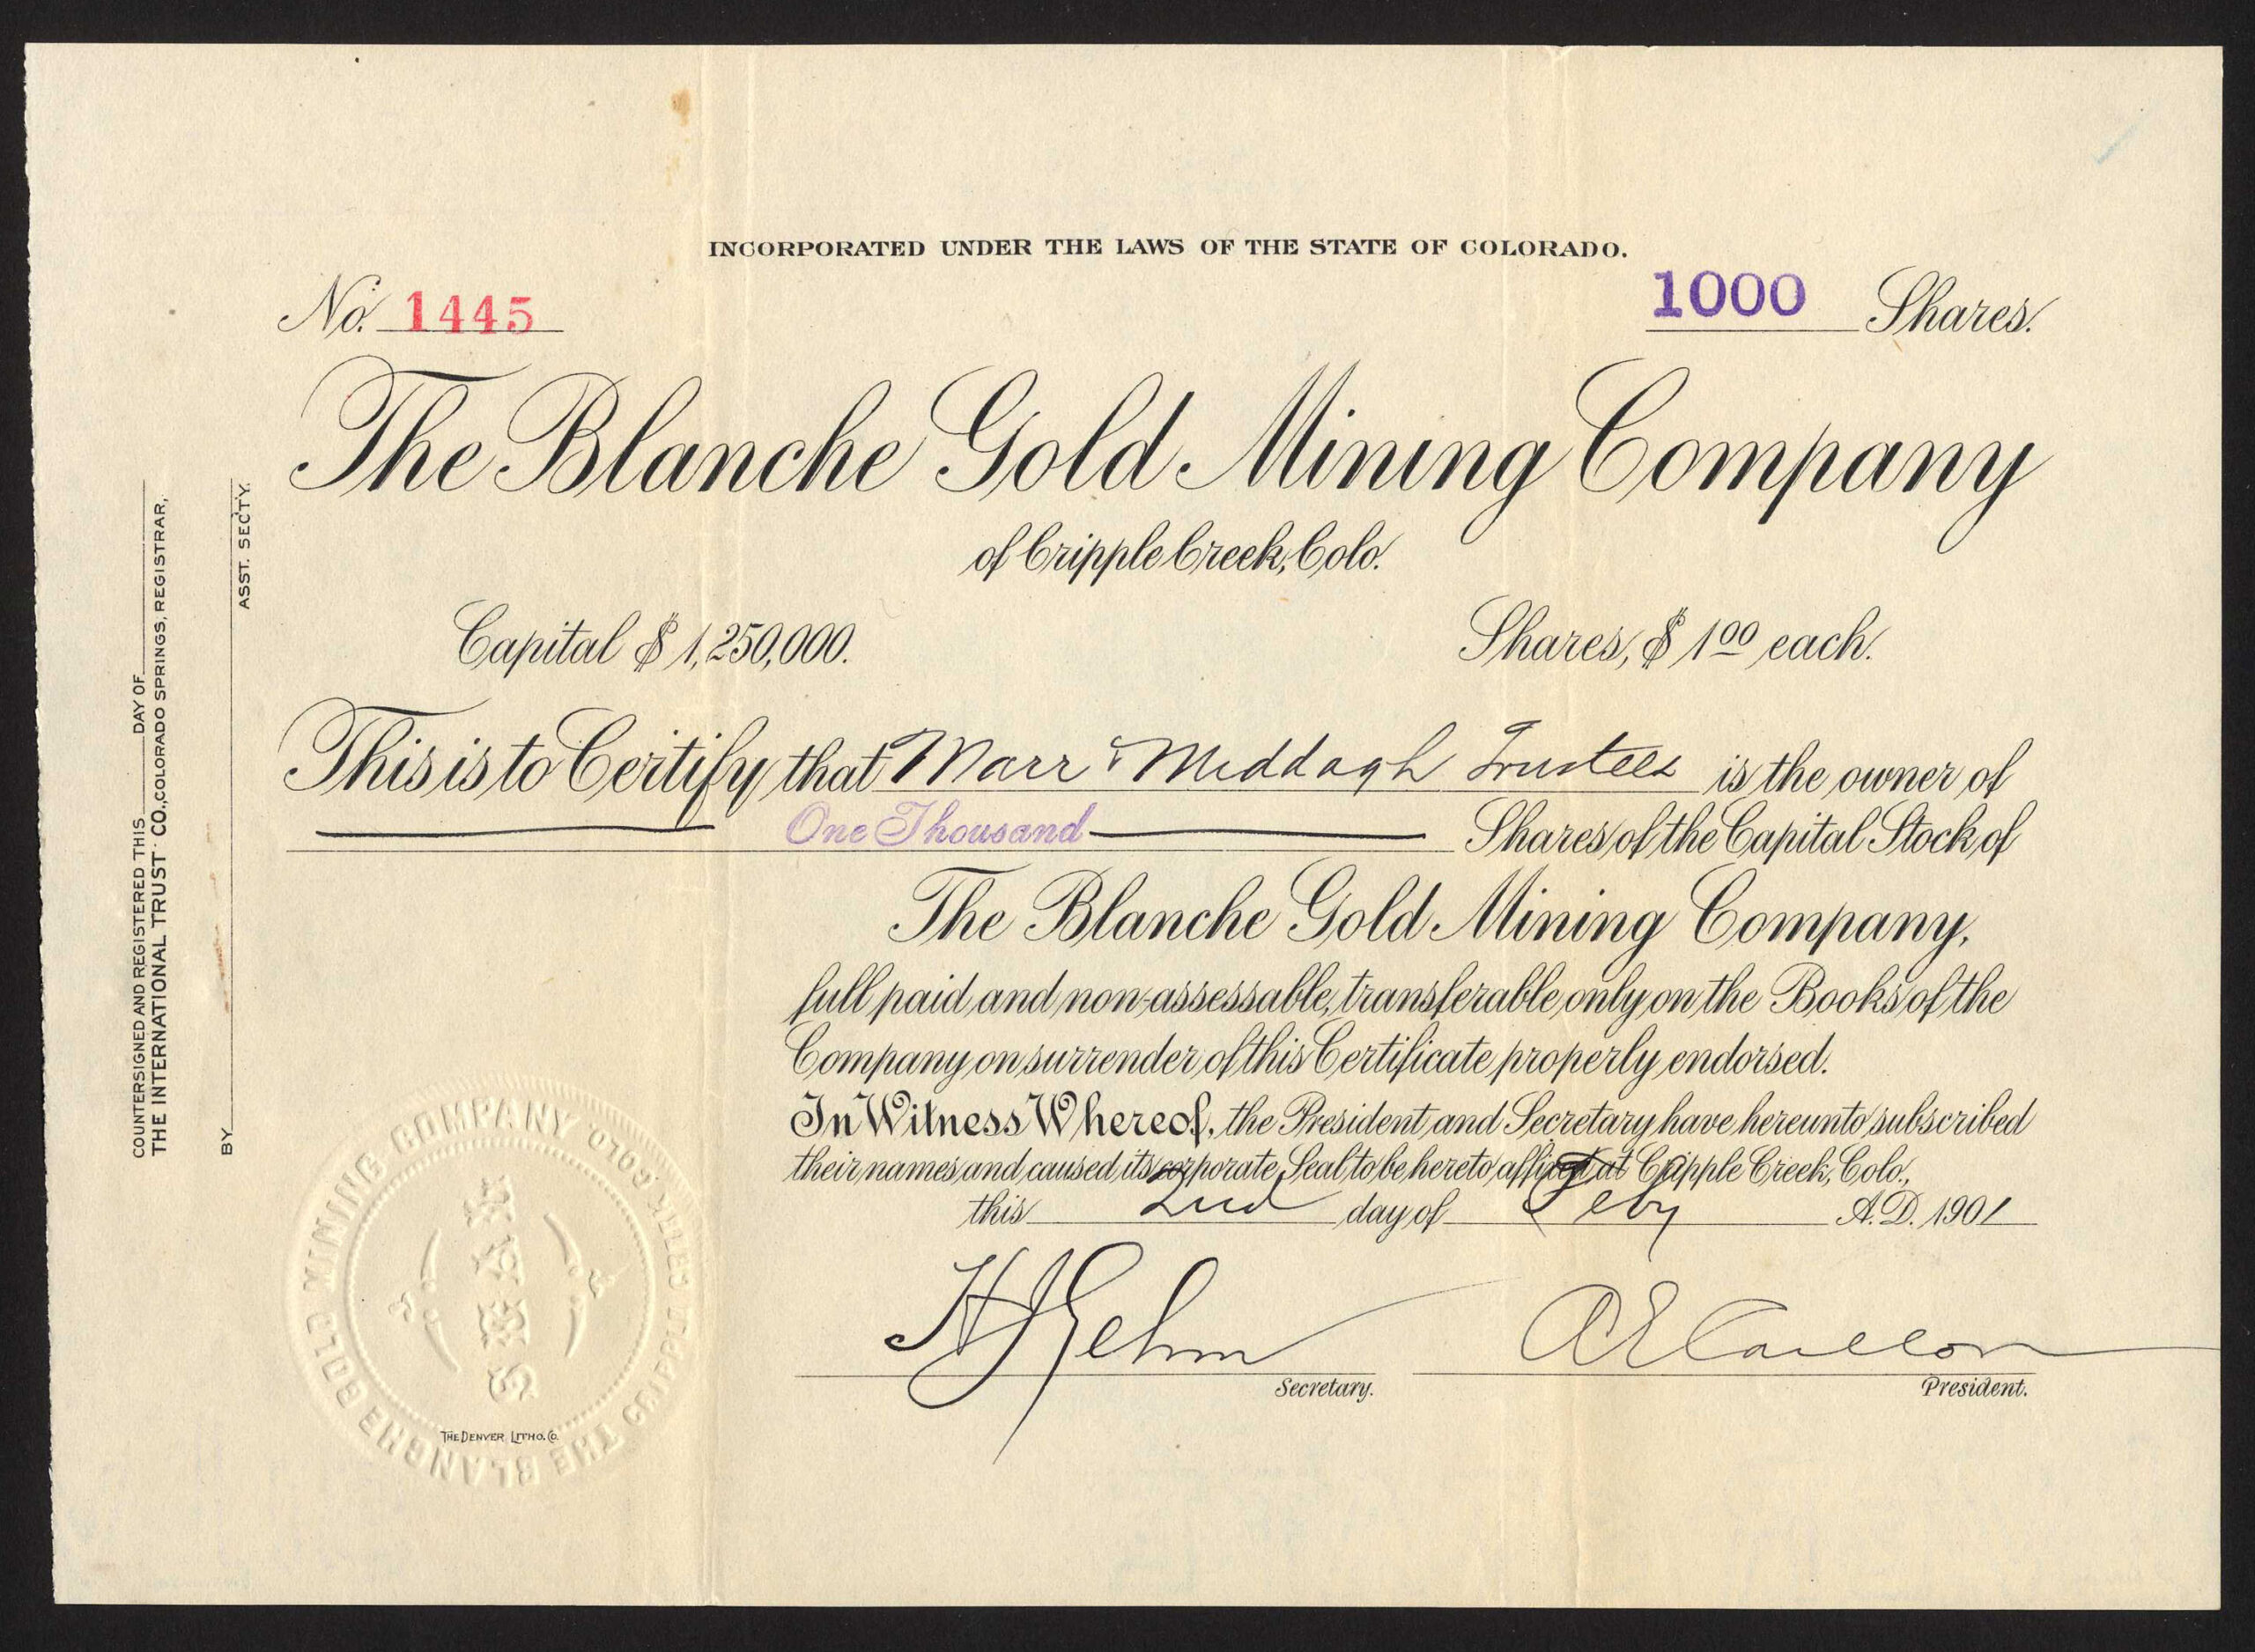 INCORPORATED UNDER THE LAWS OF THE STATE OF COLORADO.
No. 1445
1000 Shares.
The Blanche Gold Mining Company
of Cripple Creek, Colo.
Capital $ 1,250,000.
Shares, $ 1.00 each.
This is to Certify that Marr & Middagh Trustees is the owner of
One Thousand Shares of the Capital Stock of
The Blanche Gold Mining Company,
full paid and non-assessable, transferable only on the Books of the
Company on surrender of this Certificate properly endorsed.
In Witness Whereof, the President and Secretary have hereunto subscribed
their names and caused its corporate Seal to be hereto affixed at Cripple Creek, Colo.,
this 2nd day of Feby A.D. 1901
Secretary.
President.
COUNTERSIGNED AND REGISTERED THIS DAY OF
THE INTERNATIONAL TRUST CO., COLORADO SPRINGS, REGISTRAR,
BY
ASST. SECTY.
THE BLANCHE GOLD MINING COMPANY CRIPPLE CREEK COLO
SEAL
THE DENVER LITHO. CO.